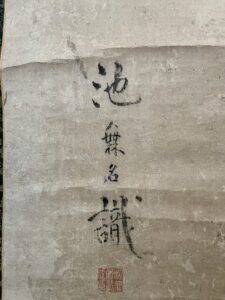 池無名識